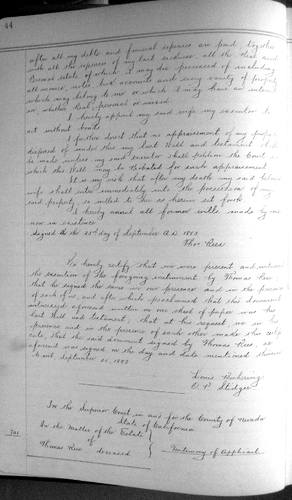 44
after all my debts and funeral expenses are paid, together
with all the expenses of my last sickness all the Real and
Personal estate of which I may die possessed of including
all moneys, notes, book accounts and every variety of property
which may belong to me or which I may have an interest
in, whether Real, personal or mixed.
I hereby appoint my said wife my executor to
act without bonds
I further direct that no appraisement of my property
disposed of under this my last Will and testament shall
be made unless my said executor shall petition the Court in
which this Will may be Probated for such appraisement
It is my wish that after my death my said beloved
wife shall enter immediately into the possession of my
said property as willed to her as herein set forth
I hereby annul all former wills made by me
now in existence
Signed this 25th day of September A.D. 1883
Thos Rees
We hereby certify that we were present and witnessed
the execution of the foregoing instrument by Thomas Rees
that he signed the same in our presence and in the presence
of each of us, and after which proclaimed that this document
aforesaid written on one sheet of paper was his
last Will and testament; that at his request we in his
presence and in the presence of each other made this certifi
cate, that the said document signed by Thomas Rees, as
aforesaid was signed on the day and date mentioned therein
to wit September 25, 1883
Pickering
O. P. Stidger
In the Superior Court in and for the County of Nevada
State of California
In the Matter of the Estate
of
Thomas Rees deceased
Testimony of Applicant